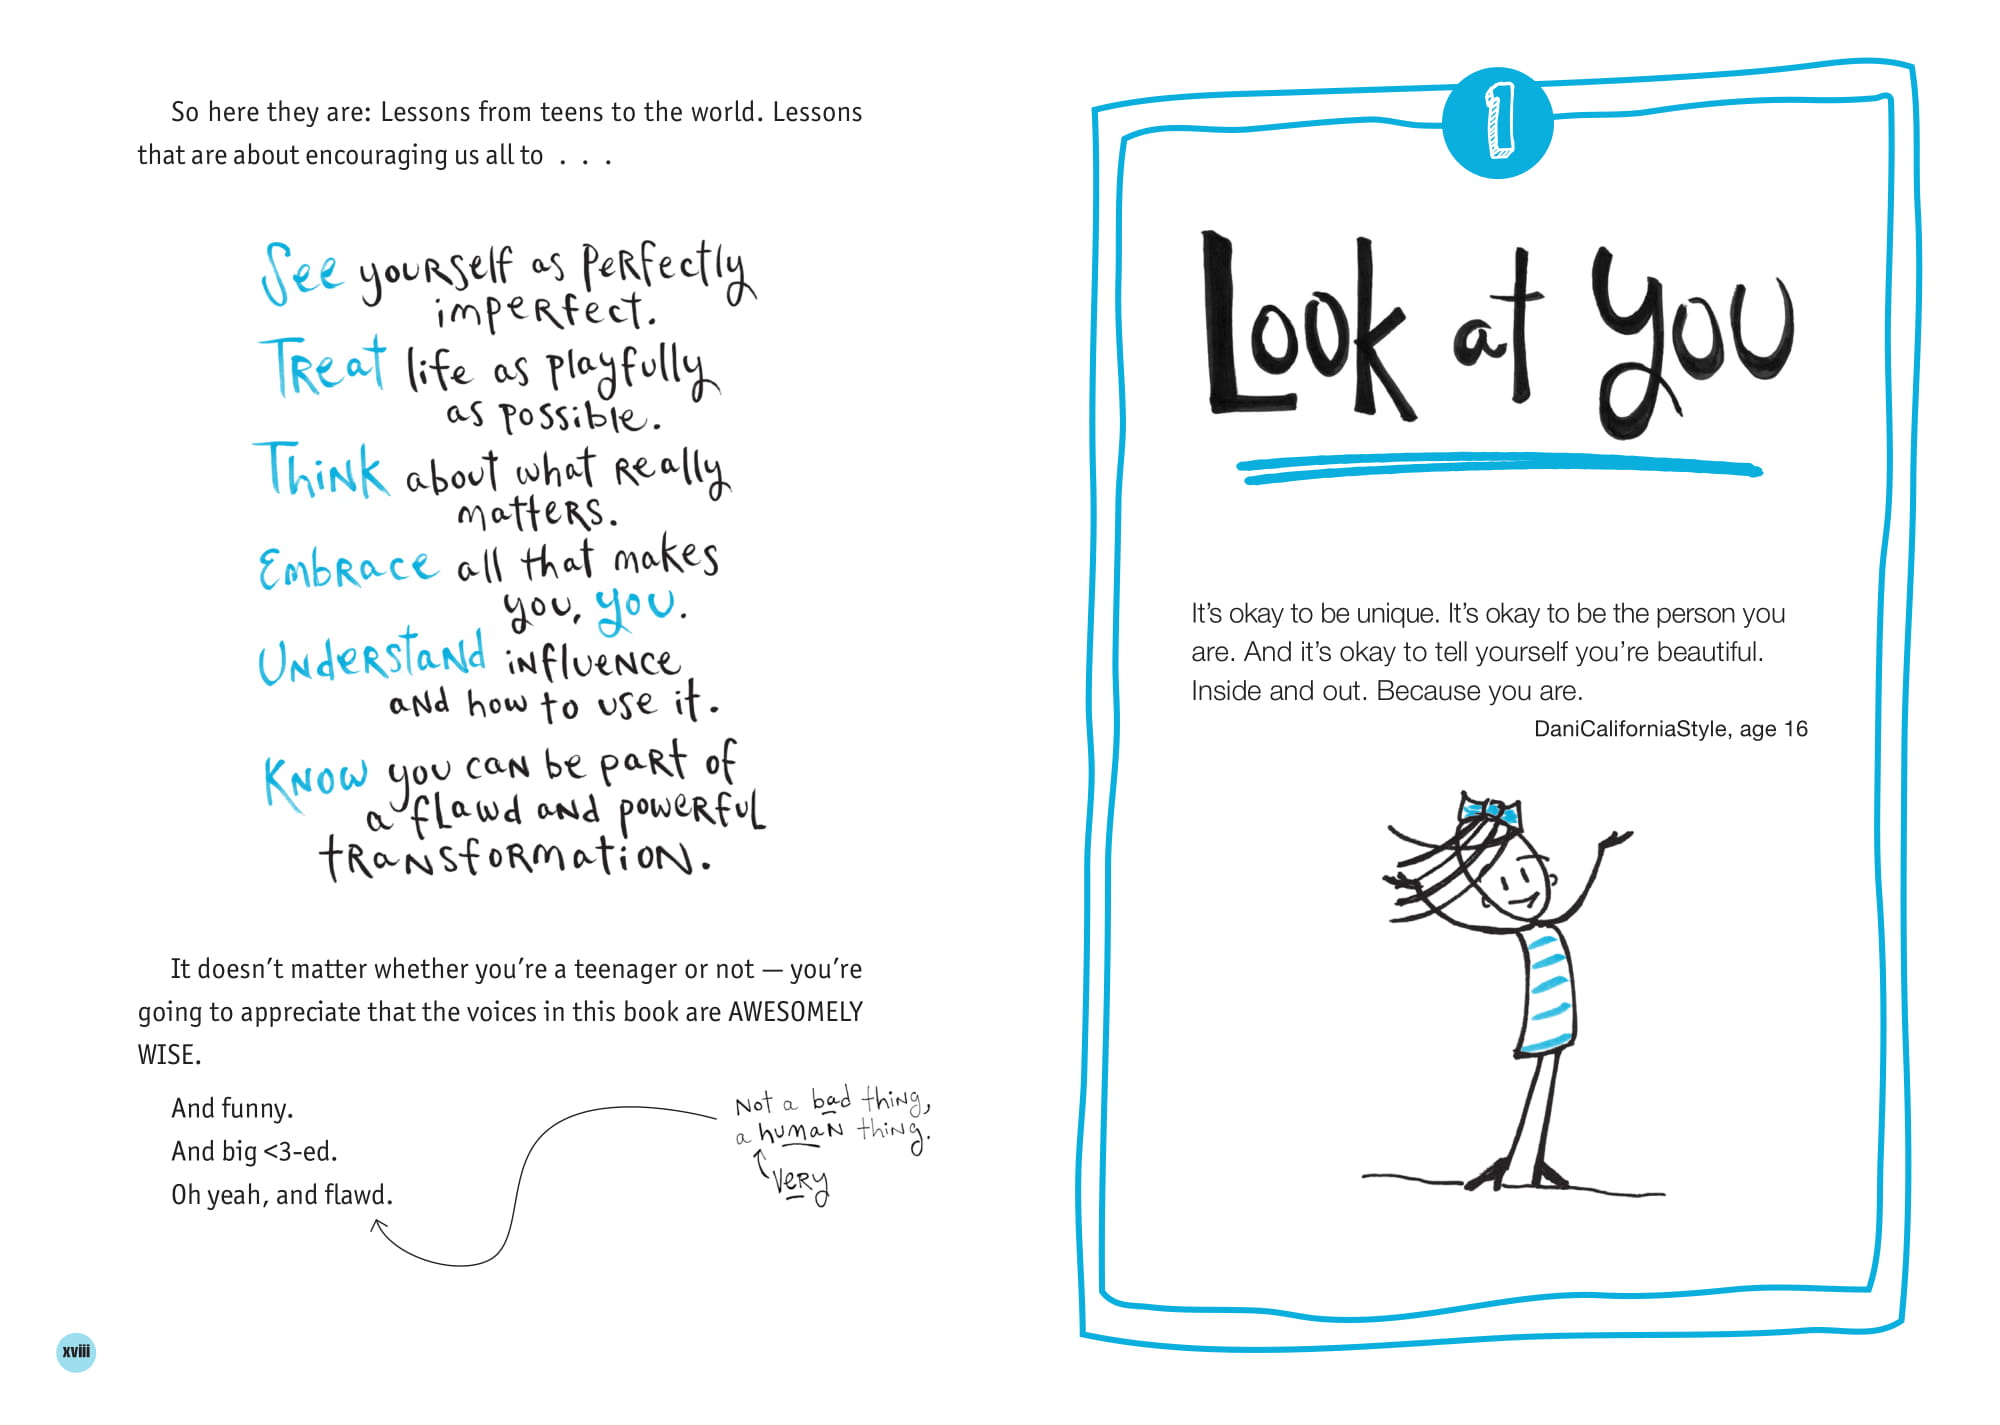 So here they are: Lessons from teens to the world. Lessons
that are about encouraging us all to . . .
See yourself as perfectly
imperfect.
Treat life as playfully
as possible.
Think about what really
matters.
Embrace all that makes
you, you.
Understand influence
and how to use it.
Know you can be part of
a flawd and powerful
transformation.
It doesn't matter whether you're a teenager or not — you're
going to appreciate that the voices in this book are AWESOMELY
WISE.
And funny.
And big <3-ed.
Oh yeah, and flawd.
Not a bad thing,
a human thing.
Very
xviii
1
Look at you
It's okay to be unique. It's okay to be the person you
are. And it's okay to tell yourself you're beautiful.
Inside and out. Because you are.
DaniCaliforniaStyle, age 16